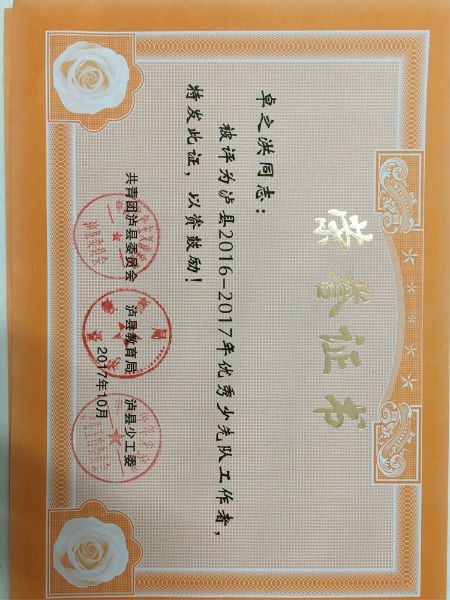 荣誉证书
卓之洪同志：
被评为泸县2016-2017年优秀少先队工作者，
特发此证，以资鼓励！
共青团泸县委员会 泸县教育局 泸县少工委
2017年10月